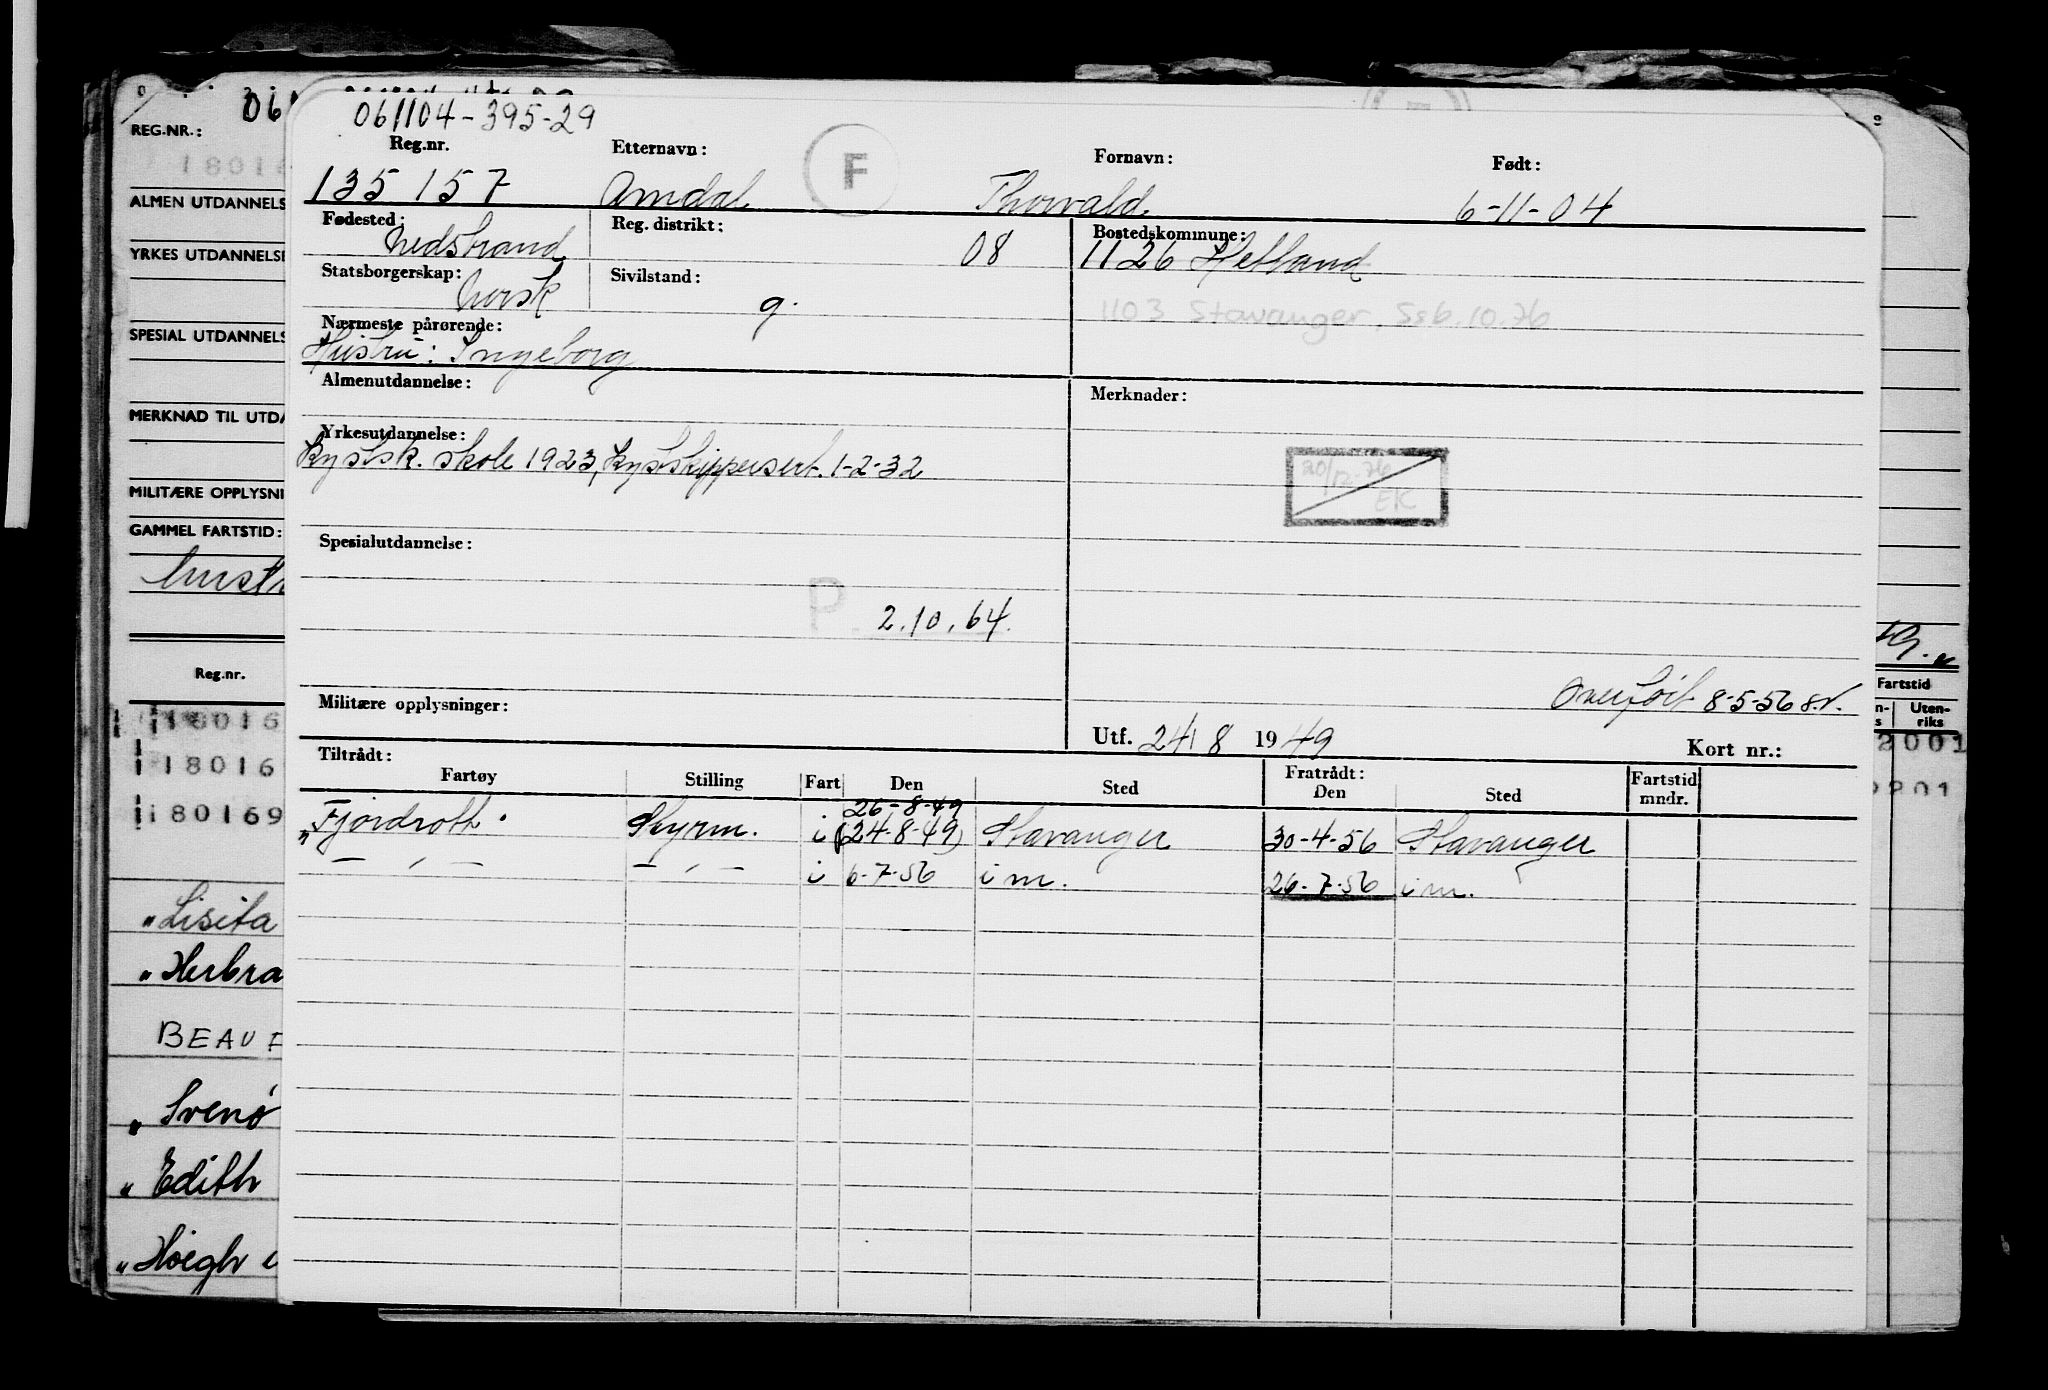 061104-395-29
Reg.nr. Etternavn: F Fornavn: Født:
135 157 Amdal Thorvald 6-11-04
Fødested: Nedstrand Reg. distrikt: 08 Bostedskommune: 1126 Hetland
Statsborgerskap: Norsk Sivilstand: g. 1103 Stavanger, Ssb. 10.76
Nærmeste pårørende:
Hustru: Ingeborg
Almenutdannelse: Merknader:
Yrkesutdannelse:
Kystsk. skole 1923, Kystskippersert. 1-2-32
20/12-76
EK
Spesialutdannelse:
P. 2.10.64.
Overført 8-5-56
Militære opplysninger:
Utf. 24/8 1949 Kort nr.:
Tiltrådt: Fratrådt:
Fartøy Stilling Fart Den Sted Den Sted Fartstid mndr.
26-8-49
"Fjordrott. Styrm. i (24-8-49) Stavanger 30-4-56 Stavanger
— " — — " — i 6-7-56 i m. 26-7-56 i m.
REG.NR.:
ALMEN UTDANNELS
YRKES UTDANNELSE
SPESIAL UTDANNELS
MERKNAD TIL UTDA
MILITÆRE OPPLYSNI
GAMMEL FARTSTID:
Reg.nr.
18016
18016
180169
"Lisita
"Herbra
BEAU
"Svenø
"Edith
"Höegh
Fartstid
Uten-
riks
2001